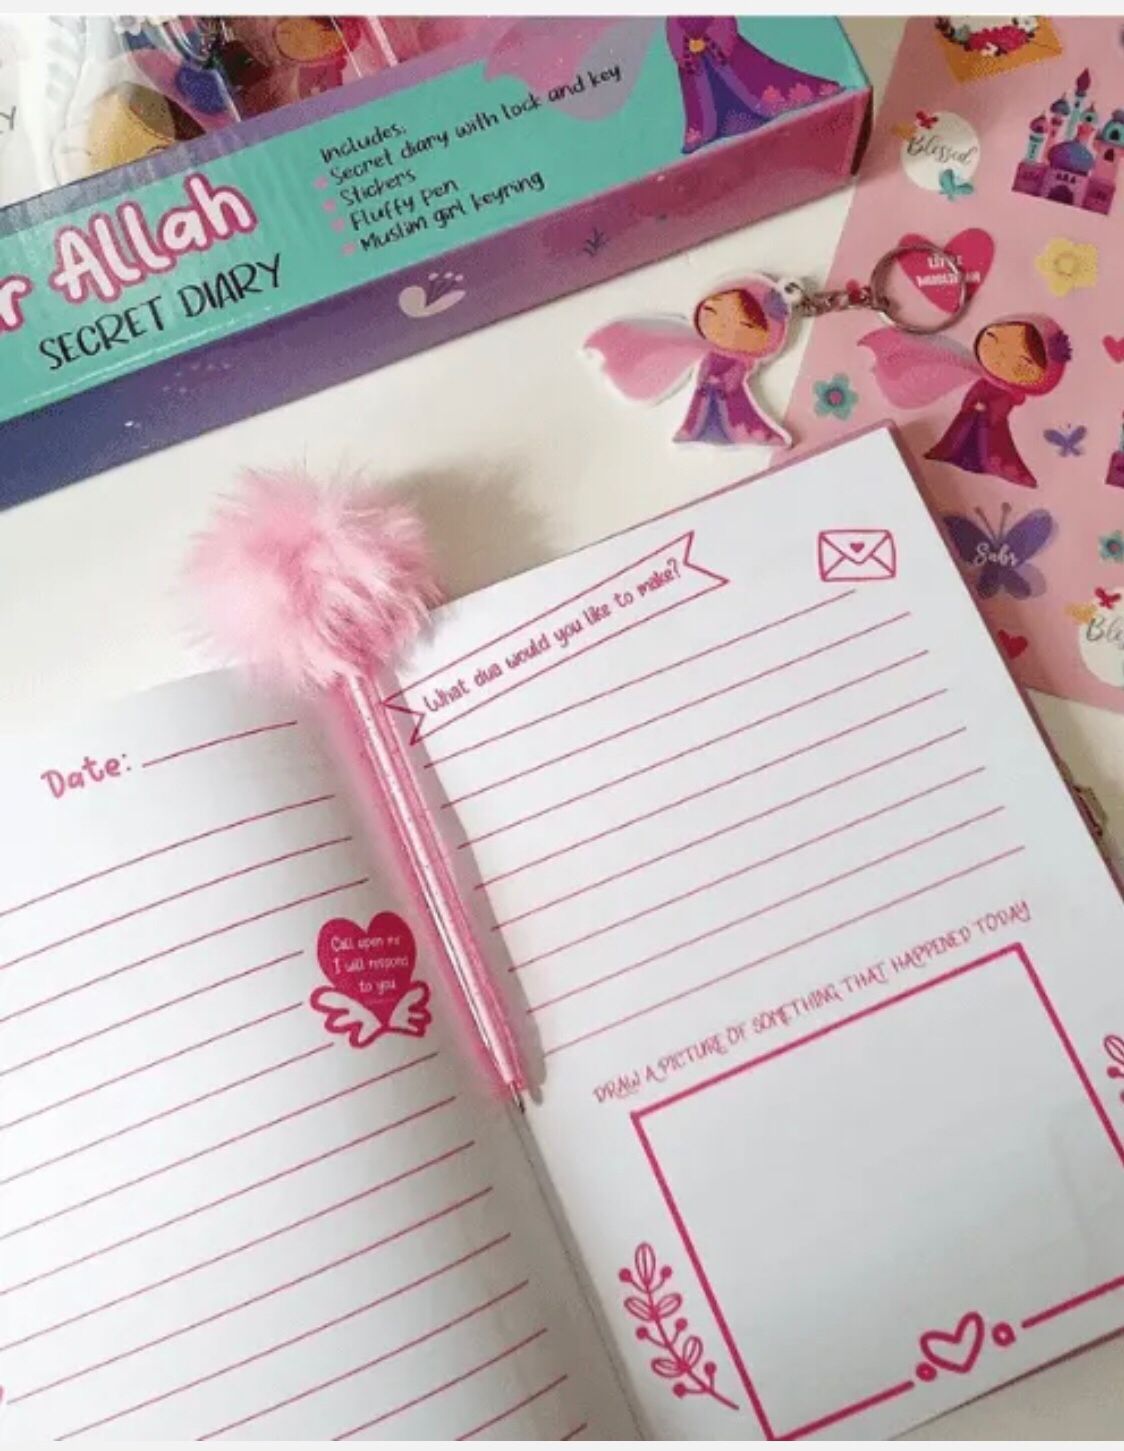 Includes:
Secret diary with lock and key
Stickers
Fluffy Pen
Muslim girl keyring
Allah
SECRET DIARY
Blessed
Sabr
What dua would you like to make?
Date:
Call upon me
I will respond
to you
DRAW A PICTURE OF SOMETHING THAT HAPPENED TODAY